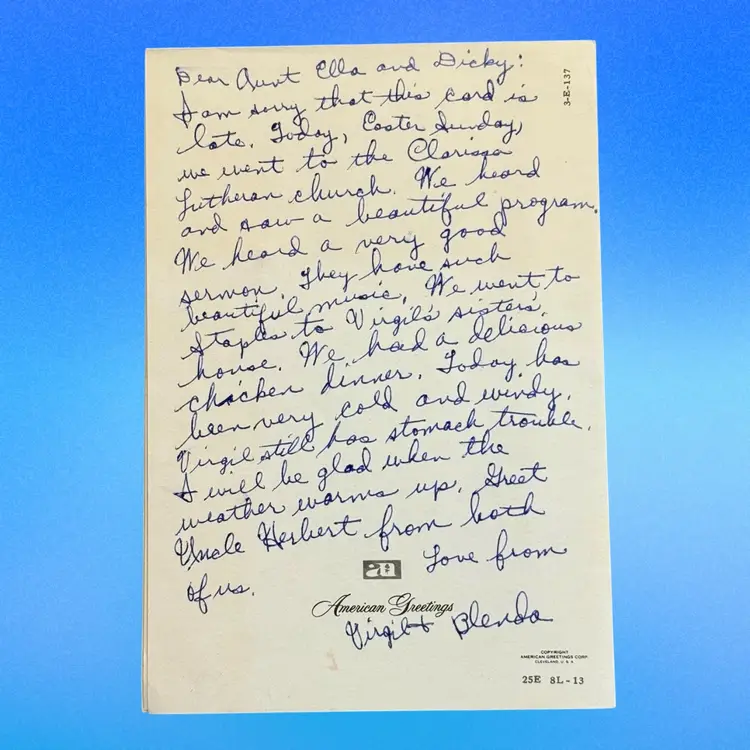 Dear Aunt Ella and Dicky:
3-E-137
I am sorry that this card is
late. Today, Easter Sunday,
we went to the Clarissa
Lutheran church. We heard
and saw a beautiful program.
We heard a very good
sermon. They have such
beautiful music. We went to
Staples to Virgil's sisters'
house. We had a delicious
chicken dinner. Today has
been very cold and windy.
Virgil still has stomach trouble.
I will be glad when the
weather warms up. Greet
Uncle Herbert from both
of us.
Love from
American Greetings
Virgil + Blenda
COPYRIGHT
AMERICAN GREETINGS CORP.
CLEVELAND, U.S.A.
25E 8L-13